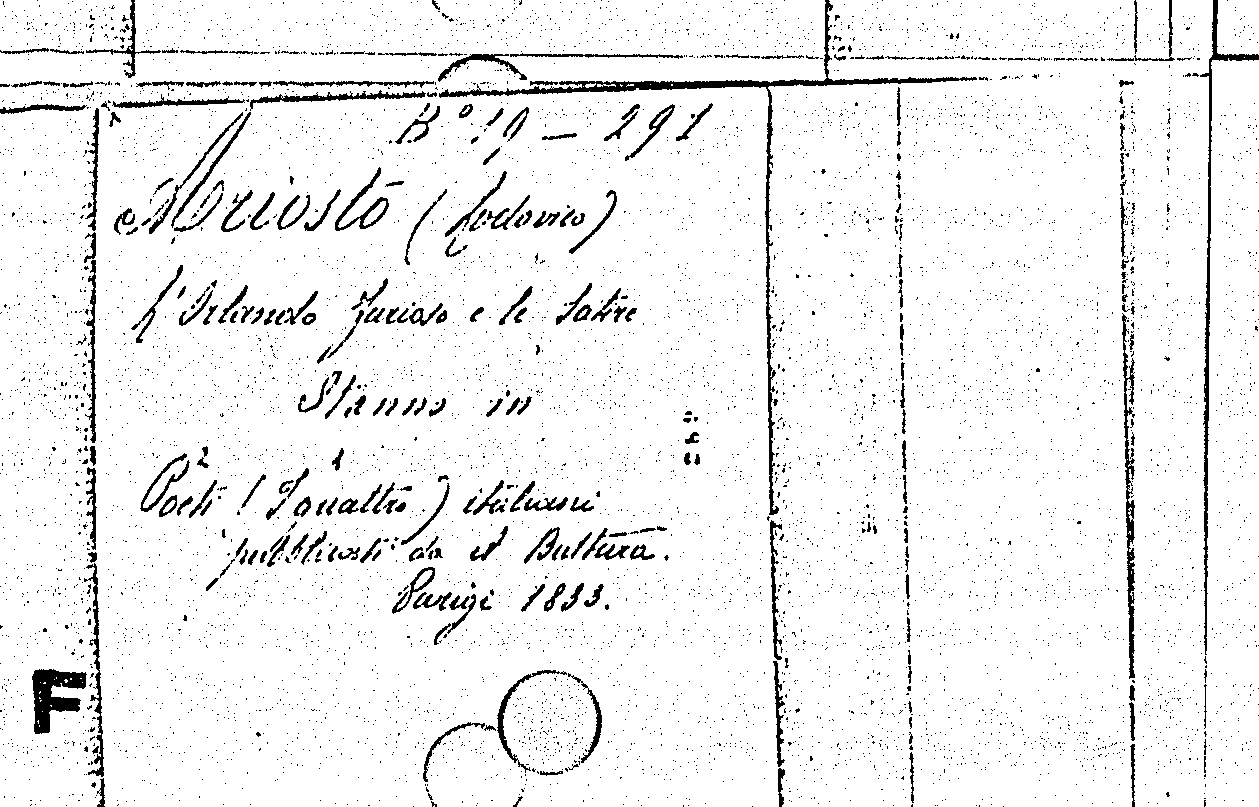 B° 19 — 291
Ariosto (Lodovico)
L'Orlando furioso e le Satire
Stanno in
2 1
Poeti (I quattro) italiani
pubblicati da A Buttura.
Parigi 1833.
F